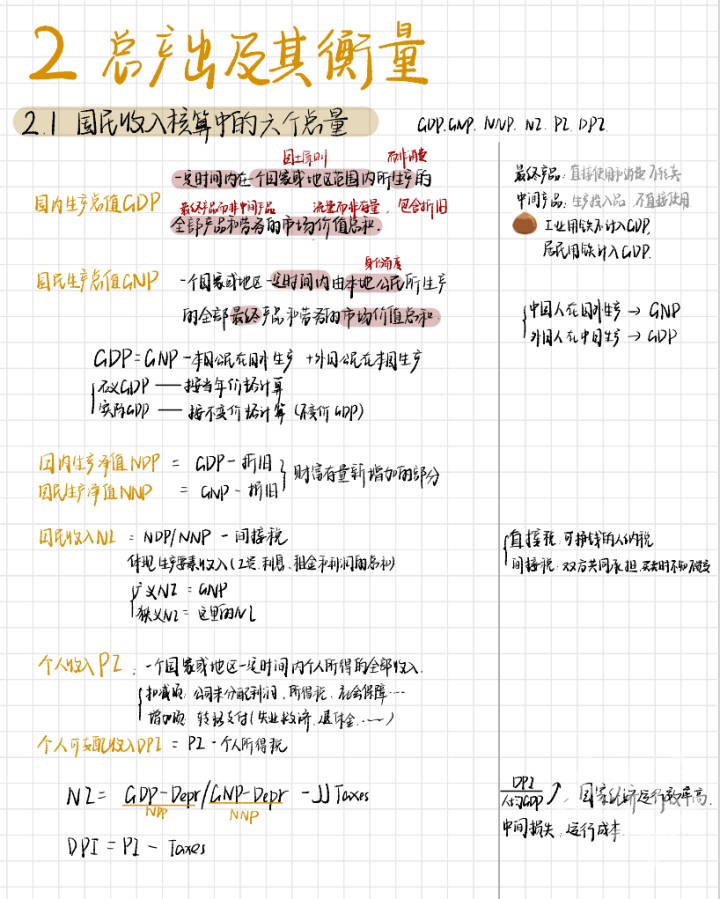 2 总产出及其衡量
2.1 国民收入核算中的六个总量
GDP. GNP. NNP. NI. PI. DPI.
国土原则 而非消费
国内生产总值GDP
一定时间内在一个国家或地区范围内所生产的
最终产品而非中间产品 流量而非存量,包含折旧
全部产品和劳务的市场价值总和.
最终产品: 直接使用和消费 不转卖
中间产品: 生产投入品 不直接使用
工业用铁不计入GDP,
居民用铁计入GDP.
身份角度
国民生产总值GNP 一个国家或地区一定时间内由本地公民所生产
的全部最终产品和劳务的市场价值总和.
中国人在国外生产 → GNP
外国人在中国生产 → GDP
GDP=GNP-本国公民在国外生产 +外国公民在本国生产
名义GDP — 按当年价格计算
实际GDP — 按不变价格计算 (不变价GDP)
国内生产净值NDP = GDP-折旧
国民生产净值NNP = GNP-折旧
财富存量新增加的部分
国民收入NI = NDP/NNP - 间接税
体现生产要素收入(工资、利息、租金和利润的总和)
广义NI = GNP
狭义NI = 这里的NI
直接税: 可挣钱的人纳税
间接税: 双方共同承担,买卖时不知不觉
个人收入PI: 一个国家或地区一定时间内个人所得的全部收入.
扣减项: 公司未分配利润、所得税、社会保障…
增加项: 转移支付(失业救济、退休金、…)
个人可支配收入DPI = PI - 个人所得税
NI= GDP-Depr/GNP-Depr -JJ Taxes
NDP NNP
DPI = PI - Taxes
DPI/人均GDP ↗, 国家经济运行效率高.
中间损失、运行成本